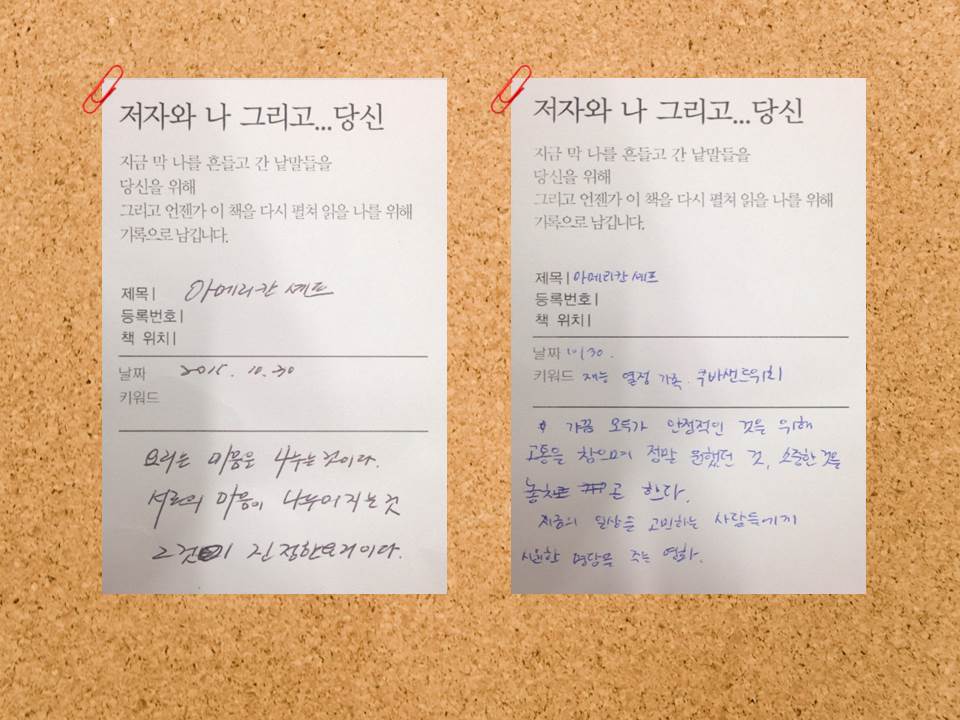 저자와 나 그리고...당신
지금 막 나를 흔들고 간 낱말들을
당신을 위해
그리고 언젠가 이 책을 다시 펼쳐 읽을 나를 위해
기록으로 남깁니다.
제목| 아메리칸 셰프
등록번호|
책 위치|
날짜 2015. 10. 30
키워드
요리는 마음을 나누는 것이다.
서로의 마음이 나누어지는 것
그것이 진정한 요리이다.
저자와 나 그리고...당신
지금 막 나를 흔들고 간 낱말들을
당신을 위해
그리고 언젠가 이 책을 다시 펼쳐 읽을 나를 위해
기록으로 남깁니다.
제목| 아메리칸 셰프
등록번호|
책 위치|
날짜 10/30.
키워드 재능 열정 가족. 쿠바샌드위치
가끔 모두가 안정적인 것을 위해
고통을 참으며 정말 원했던 것, 소중한 것을
놓치곤 한다.
지금의 일상을 고민하는 사람들에게
시원한 명답을 주는 영화.